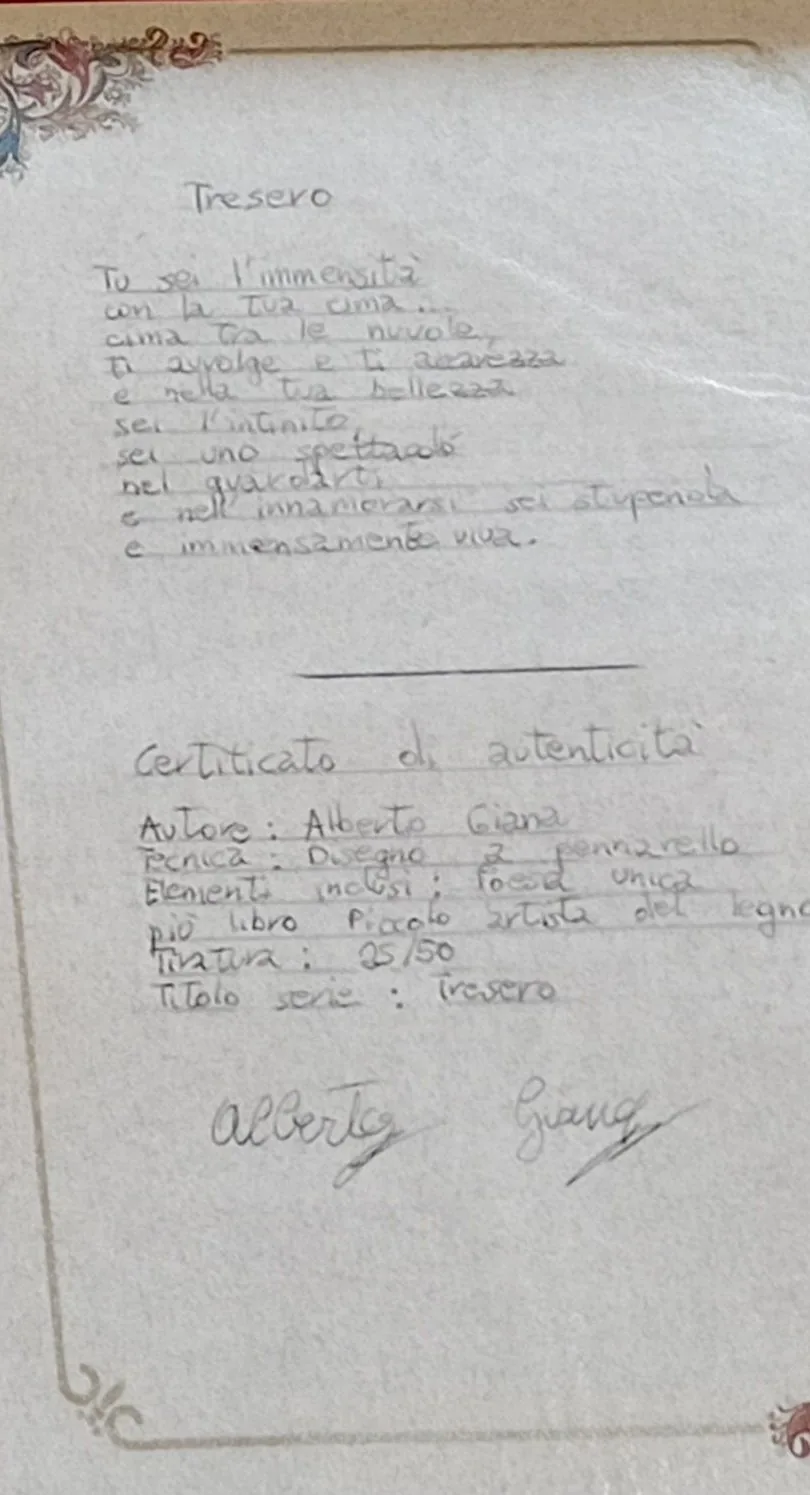 Tresero
Tu sei l'immensità
con la tua cima...
cima tra le nuvole,
ti avvolge e ti accarezza
e nella tua bellezza
sei l'infinito,
sei uno spettacolo
nel guardarti
e nell'innamorarsi sei stupenda
e immensamente viva.
Certificato di autenticità
Autore: Alberto Giana
Tecnica: Disegno a pennarello
Elementi inclusi: Poesia unica
più libro Piccolo artista del legno
Tiratura: 25/50
Titolo serie: Tresero
Alberto Giana